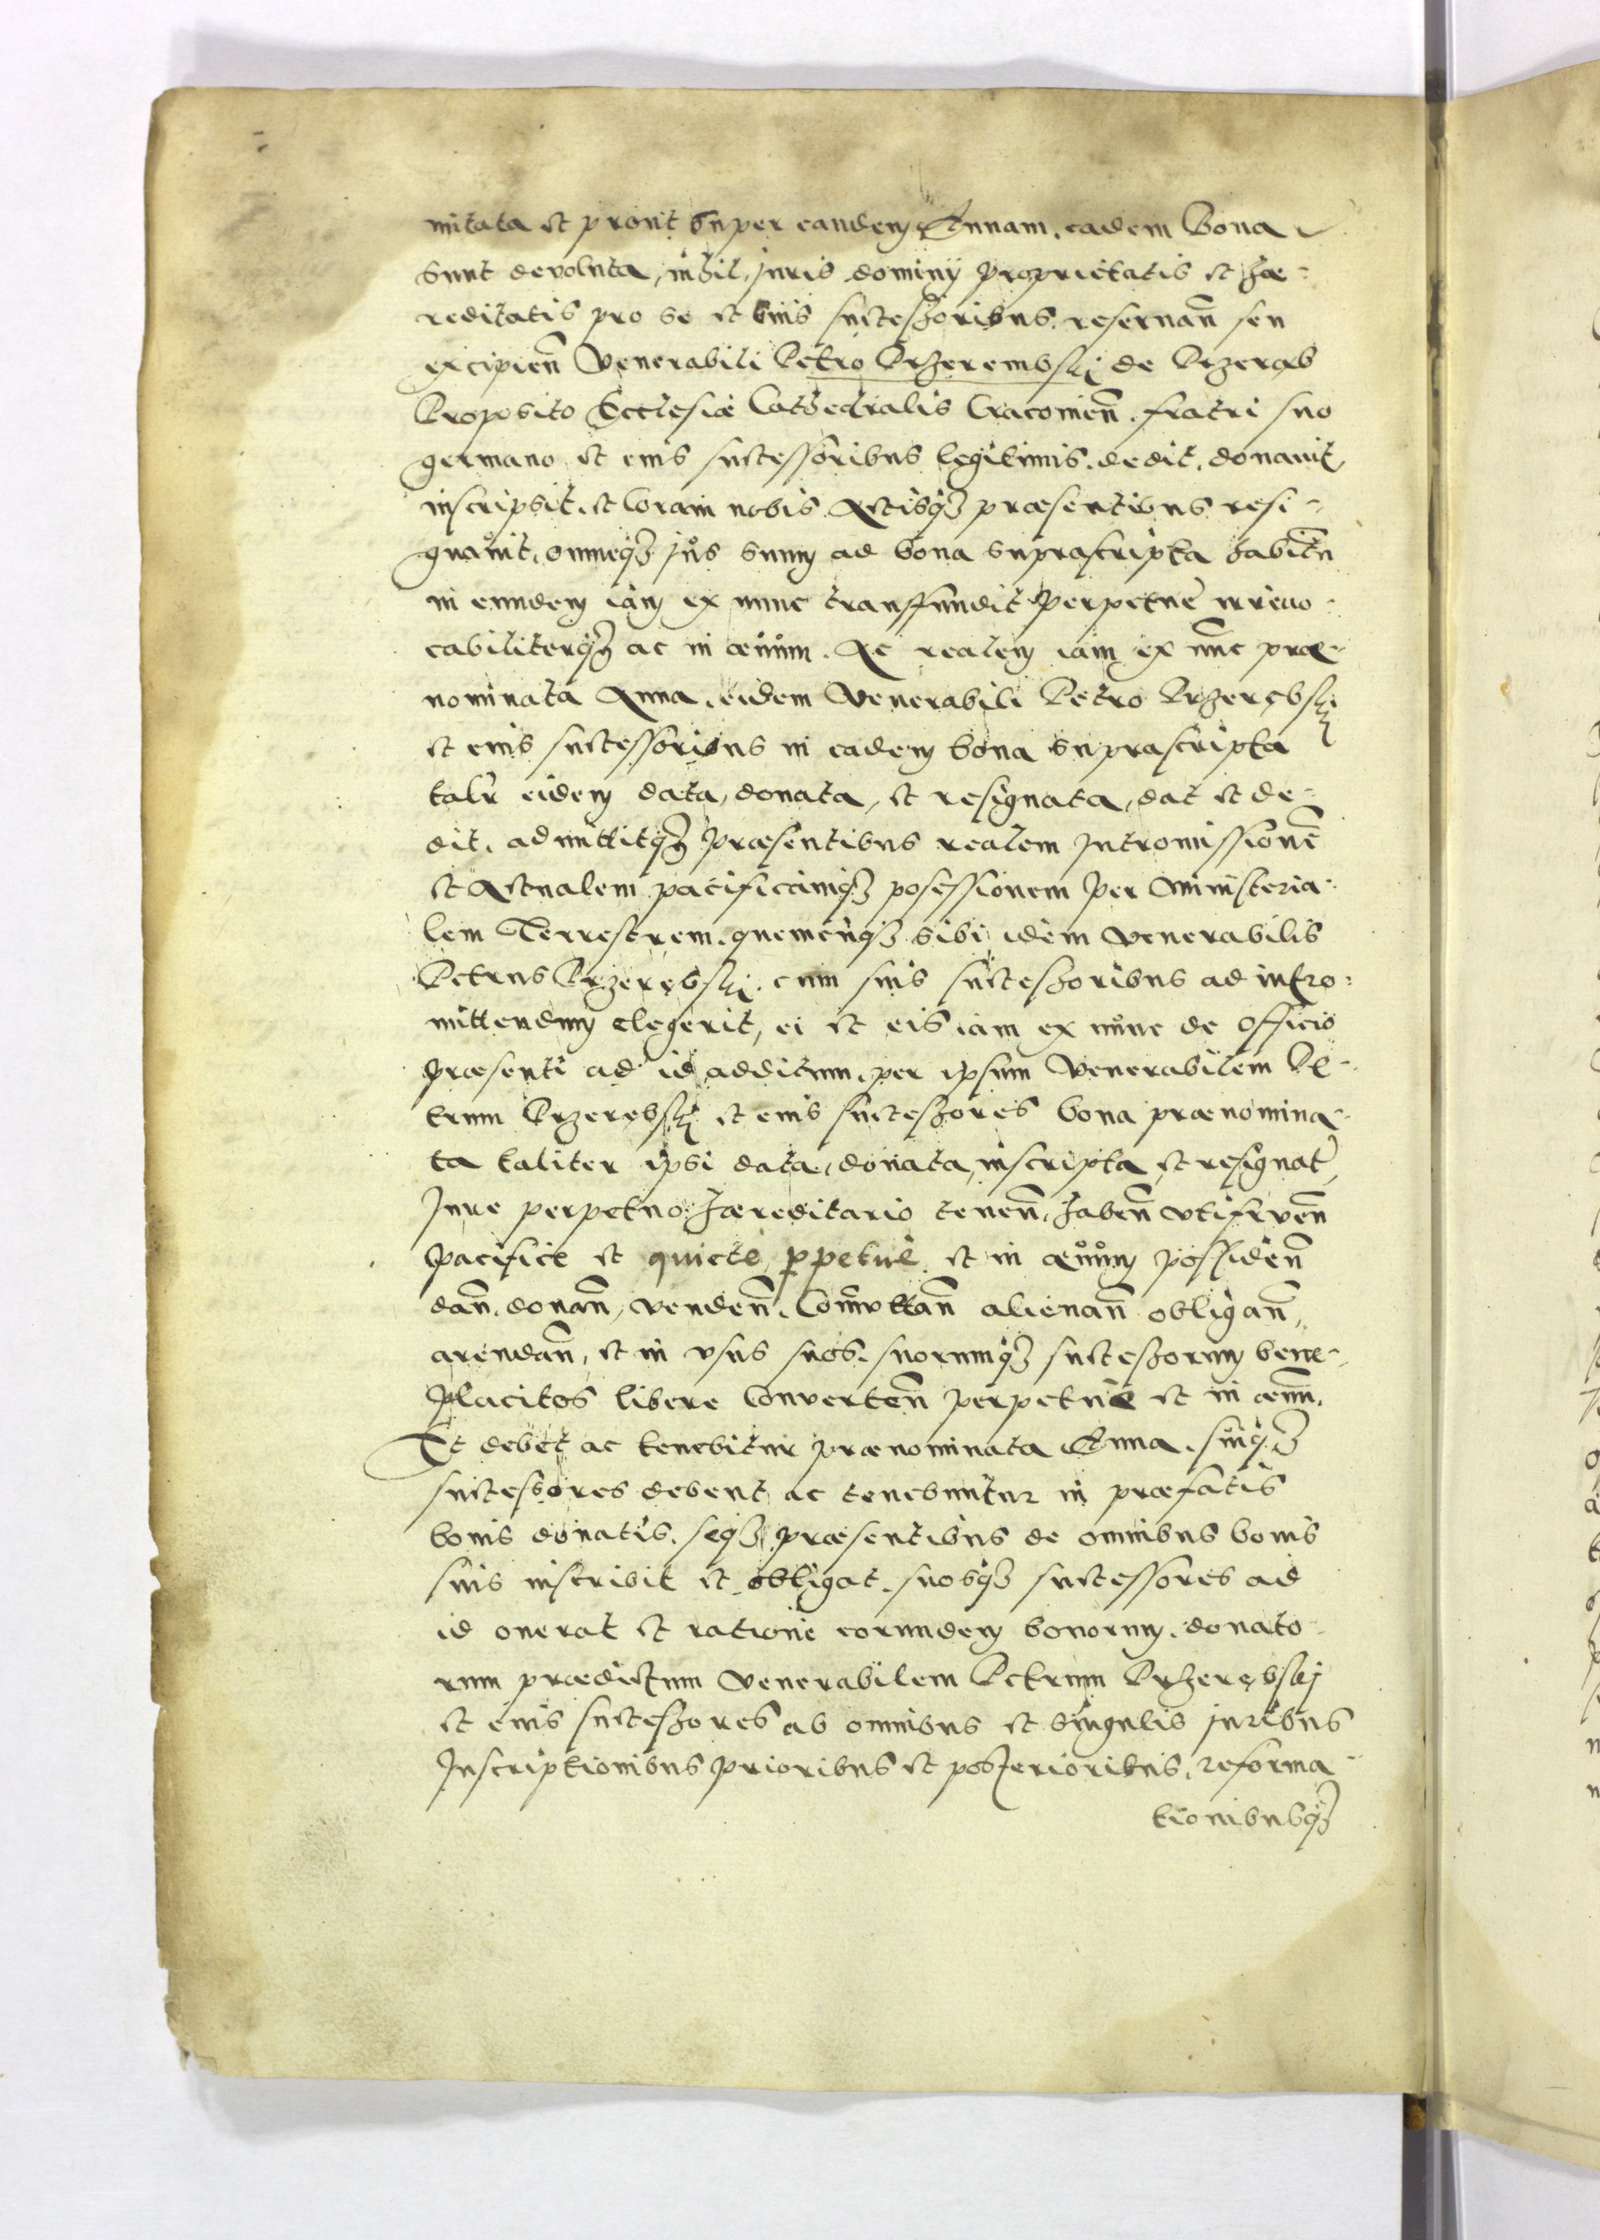 mitata et prout super eandem Annam, eadem bona
sunt devoluta, nihil juris dominij proprietatis et hæ-
reditatis pro se et suis successoribus reseruan̄ seu
excipien̄ Venerabili Petro Przerembskj de Przeręb
Præposito Ecclesiæ Cathedralis Cracouien̄. fratri suo
germano et eius successoribus legitimis. dedit, donauit,
inscripsit, et Coram nobis Actisq3 præsentibus resi-
gnauit, omneq3 jus suum ad bona suprascripta habitū
in eundem iam ex nunc transffundit perpetuè irreuo-
cabiliterq3 ac in æuum. Ac realem iam ex nunc præ-
nominata Anna, eidem Venerabili Petro Przerębskj
et eius successoribus in eadem bona suprascripta
talr̄ eidem data, donata, et resignata, dat et de-
dit, admittitq3 præsentibus realem Intromissionē
et Actualem pacificamq3 possessionem per Ministeria-
lem Terrestrem, quemcunq3 sibi idem Venerabilis
Petrus Przerębskj cum suis successoribus ad intro-
mittendum elegerit, ei et eis iam ex nunc de officio
præsenti ad id additum, per ipsum Venerabilem Pe-
trum Przerębskj et eius successores bona prænomina-
ta taliter ipsi data, donata, inscripta et resignat̄,
Jure perpetuo hæreditario tenen̄, haben̄ vtifruen̄
Pacifice et quiete, ꝑpetuè et in æuum possiden̄
dan̄, donan̄, venden̄, Com̄uttan̄ alienan̄ obligan̄,
arendan̄, et in vsus suos, suorumq3 successorum bene-
placitos libere Conuerten̄ perpetuè et in æuum.
Et debet ac tenebitur prænominata Anna, suiq3
successores debent ac tenebuntur in præfatis
bonis donatis, seq3 præsentibus de omnibus bonis
suis inscribit et obligat, suosq3 successores ad
id onerat et ratione eorundem bonorum, donato-
rum prædictum Venerabilem Petrum Przerębskj
et eius successores ab omnibus et singulis juribus
Inscriptionibus prioribus et posterioribus, reforma-
tionibusq3